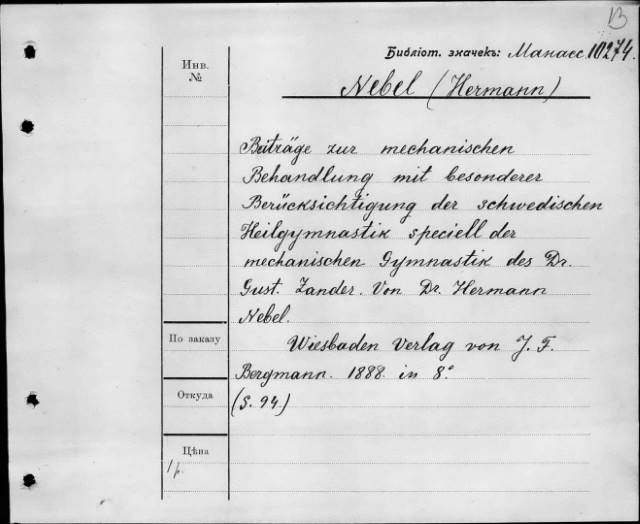 B
Библіот. значекъ: Манасс. 10274.
Инв.
№
Nebel (Hermann)
Beiträge zur mechanischen
Behandlung mit besonderer
Berücksichtigung der schwedischen
Heilgymnastik speciell der
mechanischen Gymnastik des Dr.
Gust. Zander. Von Dr. Hermann
Nebel.
По заказу
Wiesbaden Verlag von J. F.
Bergmann. 1888. in 8°
Откуда
(S. 94.)
Цѣна
1 р.